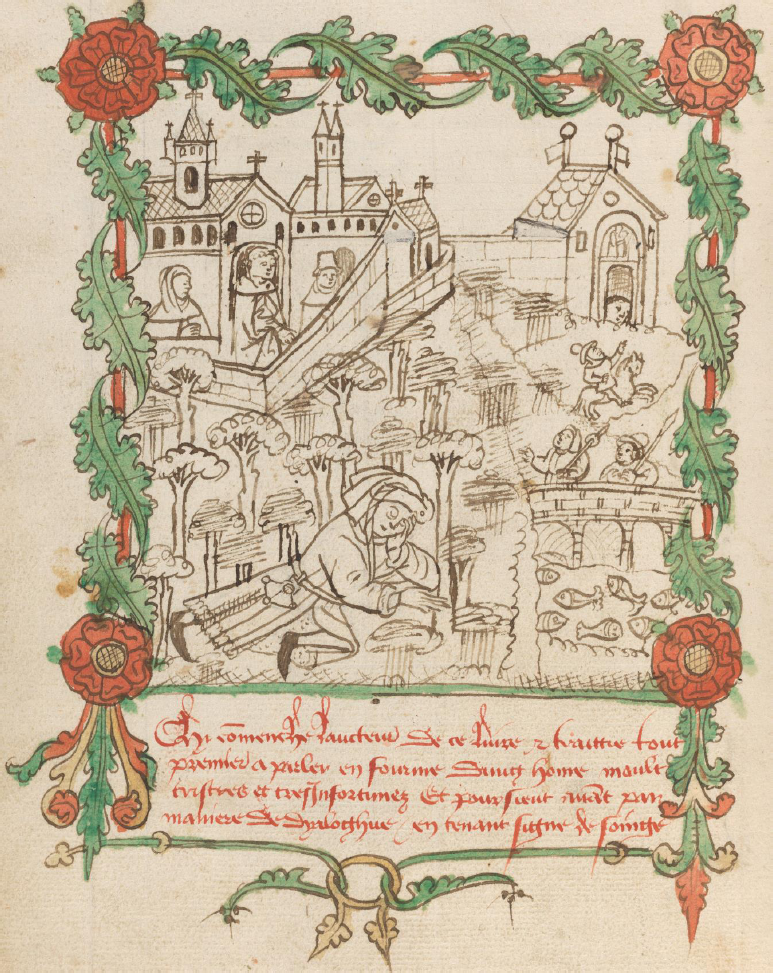 Chy comenche laucteur de ce livre & traittie tout
premier a parler en fourme dung home moult
tristres et tresinfortunez Et poursieut auāt par
maniere de dyalocghue / en tenant signe de songe